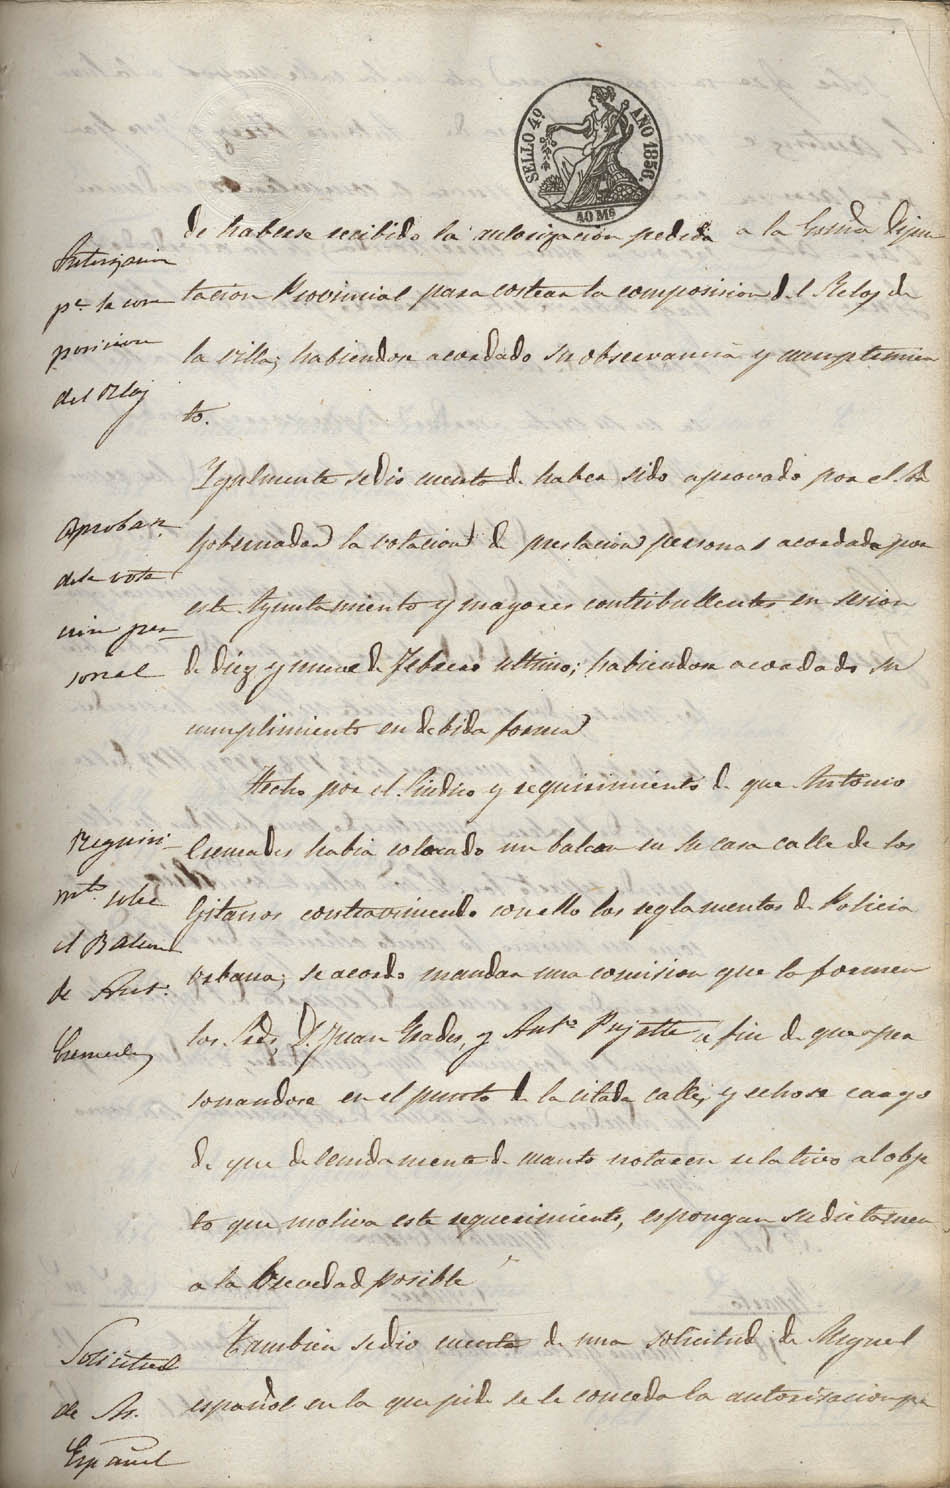 SELLO 4º AÑO 1856.
40 Ms
de haberse recibido la autorizacion pedida a la Dipu
tacion Provincial para costear la composision del Reloj de
la villa; habiendose acordado su observancia y cumplimien
to.
Autorizacion
pª la com
posicion
del Reloj
Ygulmente se dio cuenta de haber sido aprovado por el Sr
Gobernador la votacion de prestacion personal acordada por
este Ayuntamiento y mayores contribullentes en sesion
de diez y nueve de Febrero ultimo; habiendose acordado su
cumplimiento en debida forma
Aprobazn.
dela vota
cion per
sonal
Hecho por el Sindico y requirimiento de que Antonio
Cremades habia colocado un balcon en su casa calle de los
Gitanos contraviniendo con ello los reglamentos de Policia
Urbana; se acordo mandar una comision que la formen
los Sres, D. Juan Grades, y Antº Pujalte a fin de que aper
sonandose en el punto de la citada calle, y echose cargo
de que detenidamente de cuanto notasen relativo al obje
to que motiva este requerimiento, espongan su dictamen
a la brevedad posible
Requiri
mto. sobre
el Balcon
de Ant.
Cremades
Tambien se dio cuenta de una solicitud de Miguel
español en la que pide se le conceda la autorisacion pa
Solicitud
de Mr.
Español